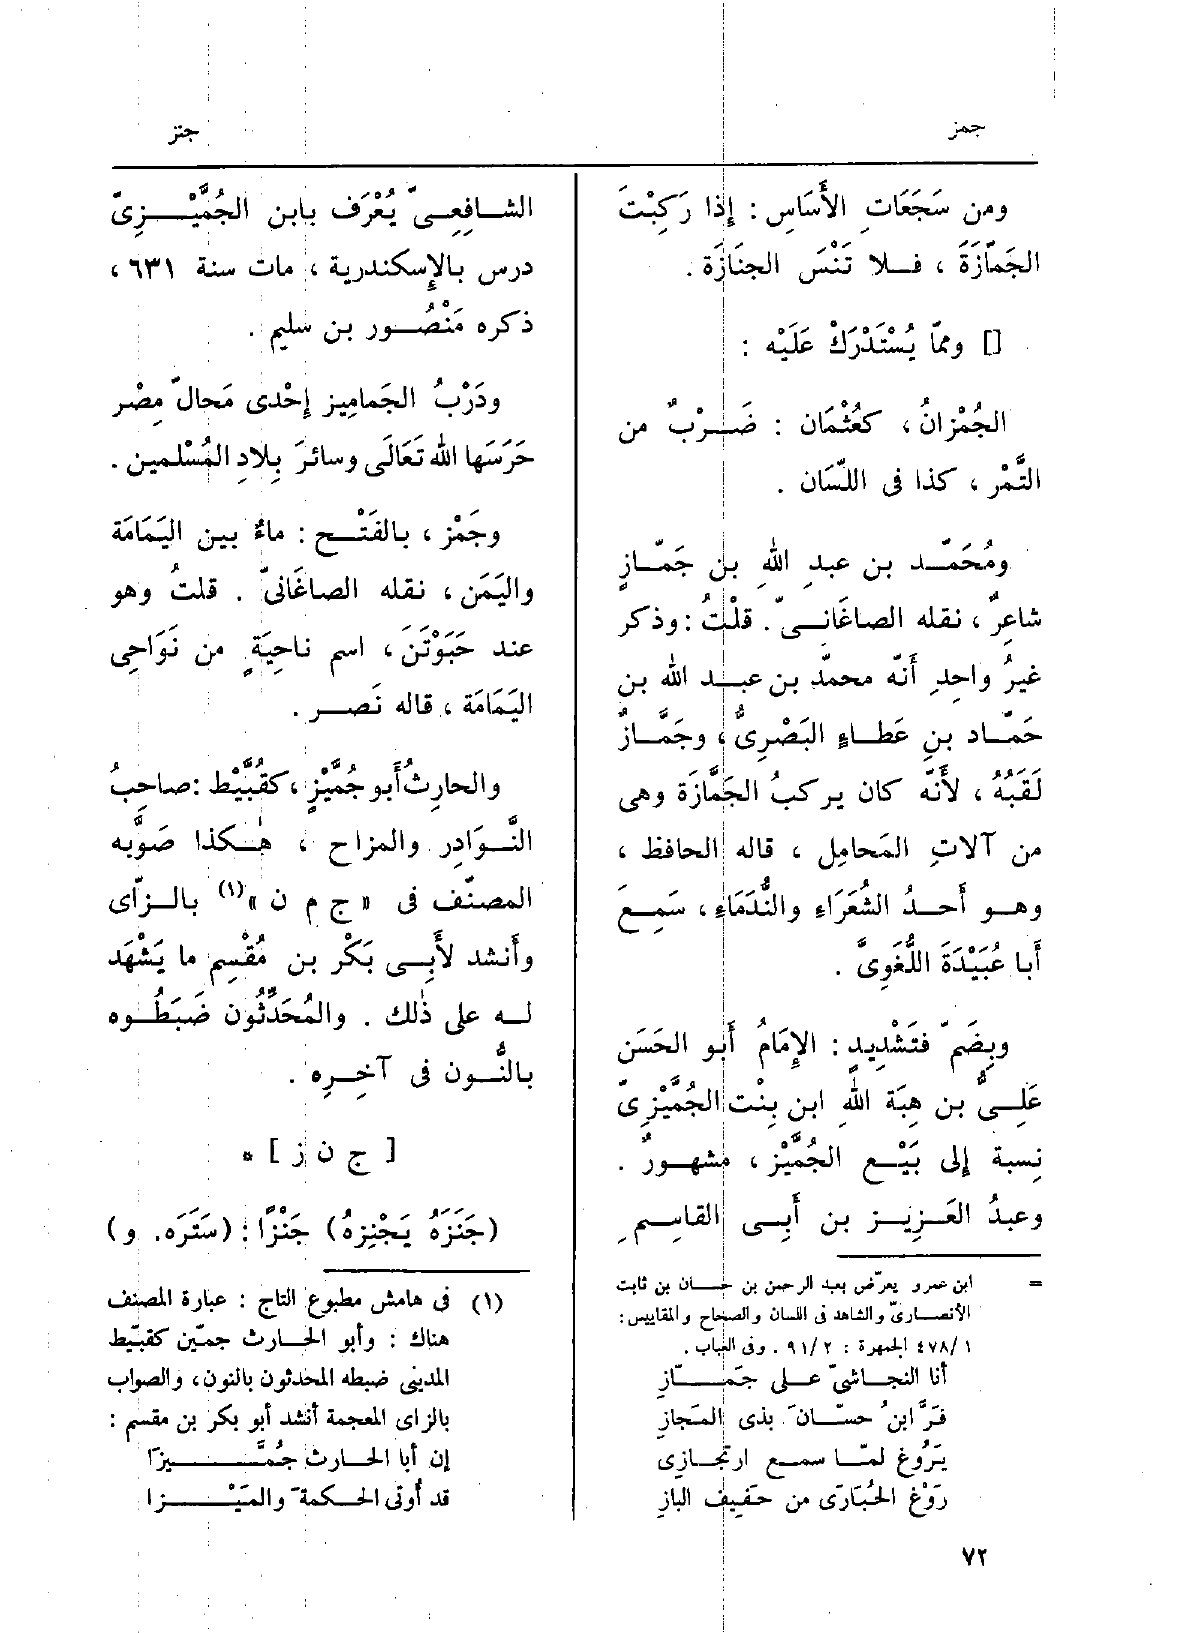 جمز
جنز
ومن سَجَعَاتِ الأَسَاسِ : إِذا رَكِبْتَ
الجَمّازَةَ ، فلا تَنْسَ الجنَازَة .
[] وممّا يُسْتَدْرَكُ عَلَيْه :
الجُمْزانُ ، كعُثْمَان : ضَرْبٌ من
التَّمْر ، كذا فى اللّسَان .
ومُحَمّد بن عبدِ اللهِ بن جَمّازٍ
شاعِرٌ ، نقله الصاغَانىّ . قلْتُ : وذكر
غيرُ واحِدٍ أَنّه محمدّ بن عبد الله بن
حَمّاد بنِ عَطاءٍ البَصْرِىُّ ، وجَمَّازٌ
لَقَبُهُ ، لأَنّه كان يركبُ الجَمَّازَة وهى
من آلاتِ المَحامِل ، قاله الحافظ ،
وهو أَحدُ الشُعَرَاءِ والنُّدَمَاءِ ، سَمِعَ
أَبا عُبَيْدَةَ اللُّغَوِىَّ .
وبِضَمّ فتَشْدِيدٍ : الإِمَامُ أَبو الحَسَن
عَلِىُّ بن هِبَة اللهِ ابن بِنْت الجُمَّيْزِىّ
نِسبة إلى بَيْع الجُمَّيْز ، مشهورٌ .
وعبدُ العَزِيز بن أَبى القاسِم
= ابن عمرو يعرّض بعبد الرحمن بن حسان بن ثابت
الأنصارىّ والشاهد فى اللسان والصحاح والمقاييس :
١/ ٤٧٨ الجمهرة : ٢/ ٩١ . وفى العباب .
أنا النجاشىّ على جَمّازِ
فَرَّ ابنُ حسّانَ بذى المَجازِ
يَرُوغ لمّا سمع ارتجازى
رَوْغ الحُبَارَى من حَفِيف البازِ
الشافِعىّ يُعْرَف بابن الجُمَّيْزِىّ
درس بالإِسكندرية ، مات سنة ٦٣١ ،
ذكره مَنْصُور بن سليم .
ودَرْبُ الجَمامِيز إِحْدى مَحالّ مِصْر
حَرَسَها الله تَعَالَى وسائرَ بِلادِ المُسْلمين .
وجَمْز ، بالفَتْح : ماءٌ بين اليَمَامَة
واليَمَن ، نقله الصاغَانىّ . قلتُ وهو
عند حَبَوْتَن ، اسم ناحِيَةٍ من نَوَاحِى
اليَمَامَة ، قاله نَصر .
والحارِثُ أَبو جُمَّيْزٍ ، كقُبَّيْط : صاحِبُ
النَّوَادِر والمزاح ، هٰكذا صَوَّبه
المصنّف فى « ج م ن »(١) بالزّاى
وأَنشد لأَبِى بَكْر بن مُقْسِم ما يَشْهَد
له على ذٰلك . والمُحَدِّثُون ضَبَطُوه
بالنُّون فى آخِرِه .
[ ج ن ز ] *
(جَنَزَهُ يَجْنِزهُ) جَنْزًا : (سَتَرَه. و)
(١) فى هامش مطبوع التاج : عبارة المصنف
هناك : وأبو الحارث جمّين كقبّيط
المدينى ضبطه المحدثون بالنون، والصواب
بالزاى المعجمة أنشد أبو بكر بن مقسم :
إن أبا الحارث جُمَّيزا
قد أُوتى الحكمةَ والمَيْزا
٧٢